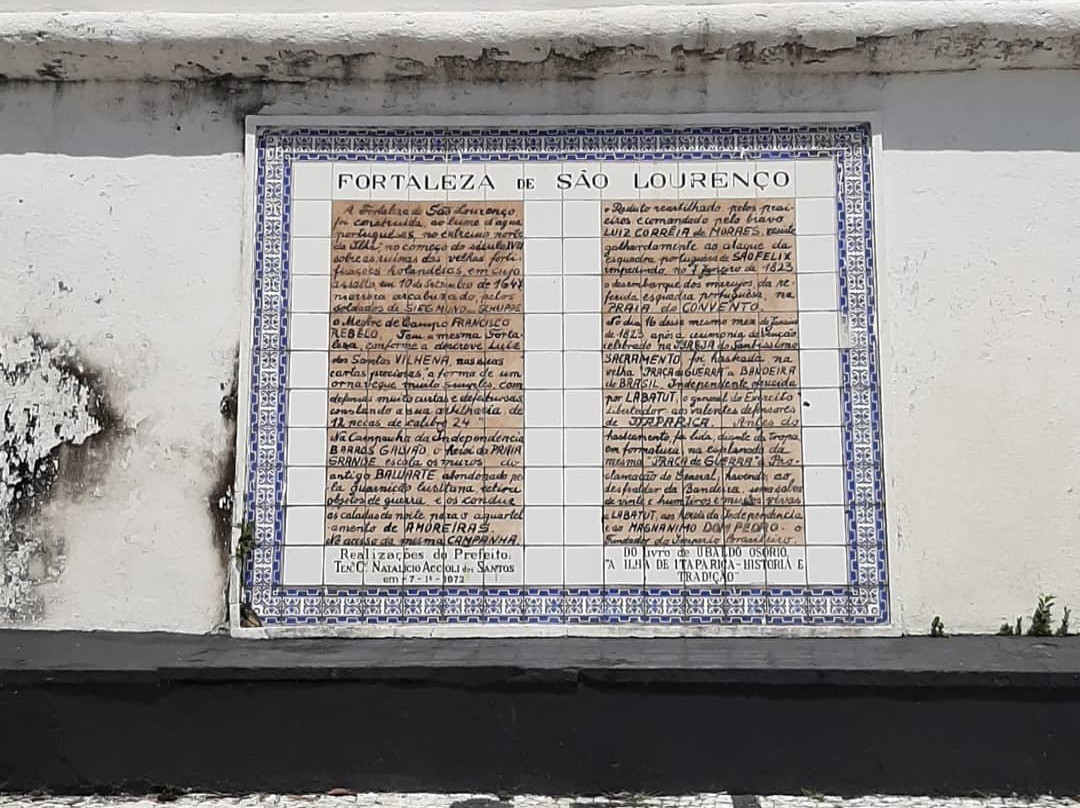 FORTALEZA DE SÃO LOURENÇO
A Fortaleza de São Lourenço
foi construida, ao lume d'agua
portugueses, no extremo norte
da Ilha, no começo do século XVIII
sobre as ruinas das velhas forti-
ficações holandêsas, em cujo
assalto em 10 de Setembro de 1647
morrera arcabuzado, pelos
soldados de SIEGMUND SCHUPPE
o Mestre de Campo FRANCISCO
REBELO. Tem a mesma Forta-
leza, conforme a descreve Luiz
dos Santos VILHENA, nas suas
cartas preciosas, a forma de um
ornaveque muito simples, com
defensas muito curtas e defeituosas
constando a sua artilharia de
12 peças de calibre 24
Na Campanha da Independencia
BARROS GALVÃO o heroi da PRAIA
GRANDE escala os muros do
antigo BALUARTE abandonado pe-
la Guarnição lusitana, retira
objetos de guerra e os conduz
ás caladas da noite para o aquartel
amento de AMOREIRAS.
No acesso da mesma CAMPANHA,
Realizações do Prefeito.
Tenᵗ Cᵉˡ Natalicio Accioli dos Santos
em - 7 - 1º - 1972
o Reduto reartilhado pelos prai-
eiros e comandado pelo bravo
LUIZ CORRÊIA de MORAES, resiste
galhardamente ao ataque da
esquadra portuguesa de SÃO FELIX
impedindo, no 7 Janeiro de 1823
o desembarque dos marujos da re-
ferida esquadra portuguesa, na
PRAIA do CONVENTO.
No dia 16 desse mesmo mez de Janeiro
de 1823, após a cerimonia da benção
celebrada na IGREJA do Santissimo
SACRAMENTO foi hasteada na
velha "PRAÇA de GUERRA" a BANDEIRA
do BRASIL, Independente oferecida
por LABATUT, o general do Exercito
libertador aos valentes defensores
de ITAPARICA. Antes do
hasteamento foi lida, diante da tropa
em formatura, na esplanada da
mesma "PRAÇA de GUERRA" a Pro-
clamação do General, havendo, ao
desfraldar da Bandeira, uma salva
de vinte e hum tiros e muitos vivas
a LABATUT, aos heróis da Independencia
e ao MAGNANIMO DOM PEDRO - o
Fundador do Imperio Brasileiro.
DO Livro de UBALDO OSORIO,
"A ILHA DE ITAPARICA - HISTORIA E
TRADIÇÃO"